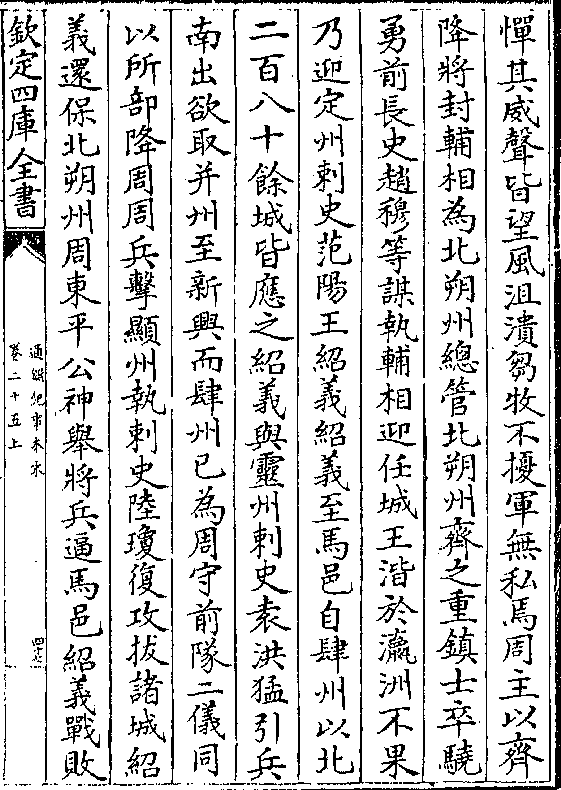 憚其威聲皆望風沮潰芻牧不擾軍無私焉周主以齊
降將封輔相為北朔州總管北朔州齊之重鎮士卒驍
勇前長史趙穆等謀執輔相迎任城王湝於瀛洲不果
乃迎定州刺史范陽王紹義紹義至馬邑自肆州以北
二百八十餘城皆應之紹義與靈州刺史袁洪猛引兵
南出欲取并州至新興而肆州已為周守前隊二儀同
以所部降周周兵擊顯州執刺史陸瓊復攻拔諸城紹
義還保北朔州周東平公神舉將兵逼馬邑紹義戰敗
欽定四庫全書
通鑑紀事本末
卷二十五上
四十七